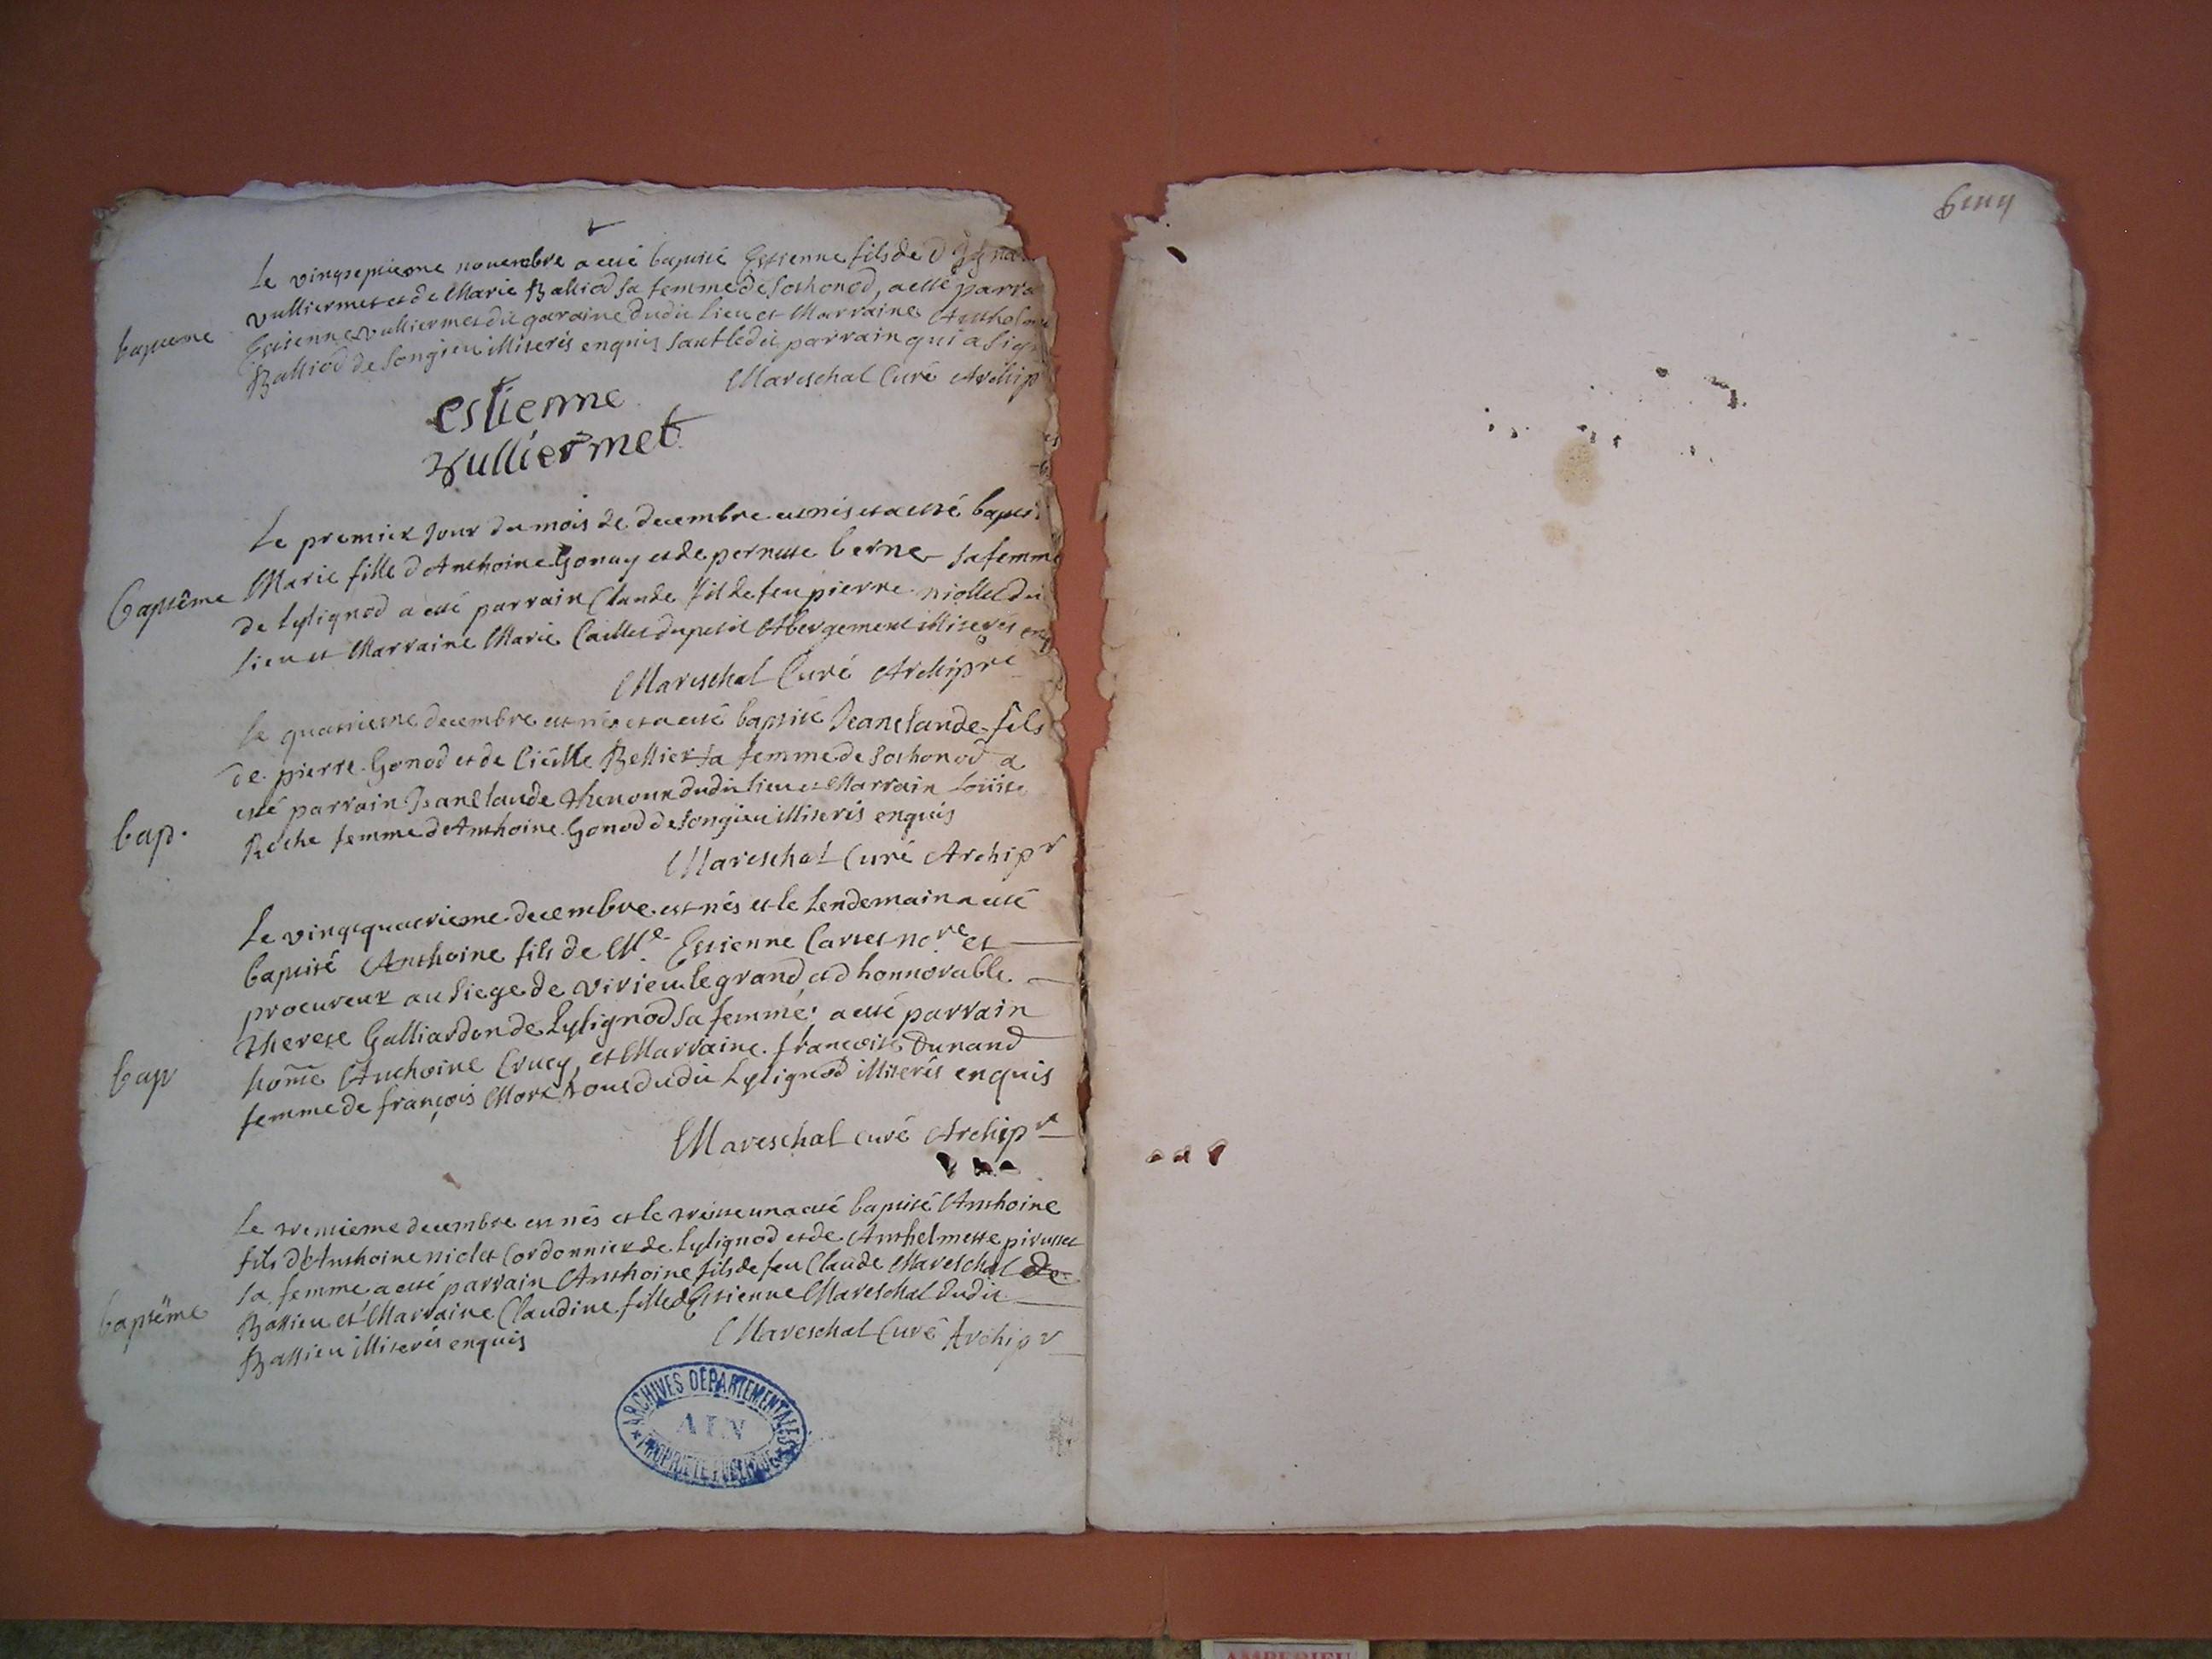 Le vingseptieme novembre a esté baptisé Estienne fils de d
vulliermet et de Marie Balliod sa femme de Sothonod, a esté parra
bapteme
Estienne vulliermet dit garaine dudit lieu et Marraine Anthelme
Balliod de Songieu illiterés enquis sauf ledit parrain qui a sig
Mareschal Curé Archip
estienne
vulliermet
Le premier Jour du mois de decembre est nés et a esté baptis
Baptême
Marie fille d'Anthoine Gonay et de pernette berne sa femme
de Lylignod a esté parrain Claude fil de feu pierre niollet du
lieu et Marraine Marie Caillet du petit Abergement illiterés enq
Mareschal Curé Archipre
Le quatrieme decembre est nés et a esté baptisé Jeanclaude fils
de pierre Gonod et de Cicille Bellier sa femme de Sothonod a
esté parrain Jeanclaude thenour dudit lieu et Marrain Loüise
bap.
Roche femme d'Anthoine Gonod de Songieu illiterés enquis
Mareschal Curé Archipr
Le vingtquatrieme decembre est nés et le Lendemain a esté
baptisé Anthoine fils de Me Estienne Carret nore et
procureur au Siege de virieu le grand et d'honnorable
therese Galliardon de Lylignod sa femme; a esté parrain
bap
home Anthoine Crucy, et Marraine francoise Dunand
femme de françois More tous dudit Lylignod illiterés enquis
Mareschal curé Archipr
Le trentieme decembre est nés et le trente un a esté baptisé Anthoine
fils d'Anthoine niolet Cordonnier de Lylignod et de Anthelmette pirusset
sa femme a esté parrain Anthoine fils de feu Claude Mareschal de
baptëme
Bassieu et Marraine Claudine fille d'Estienne Mareschal dudit
Bassieu illiterés enquis
Mareschal Curé Archipr
ARCHIVES DÉPARTEMENTALES
AIN
PROPRIÉTÉ PUBLIQUE